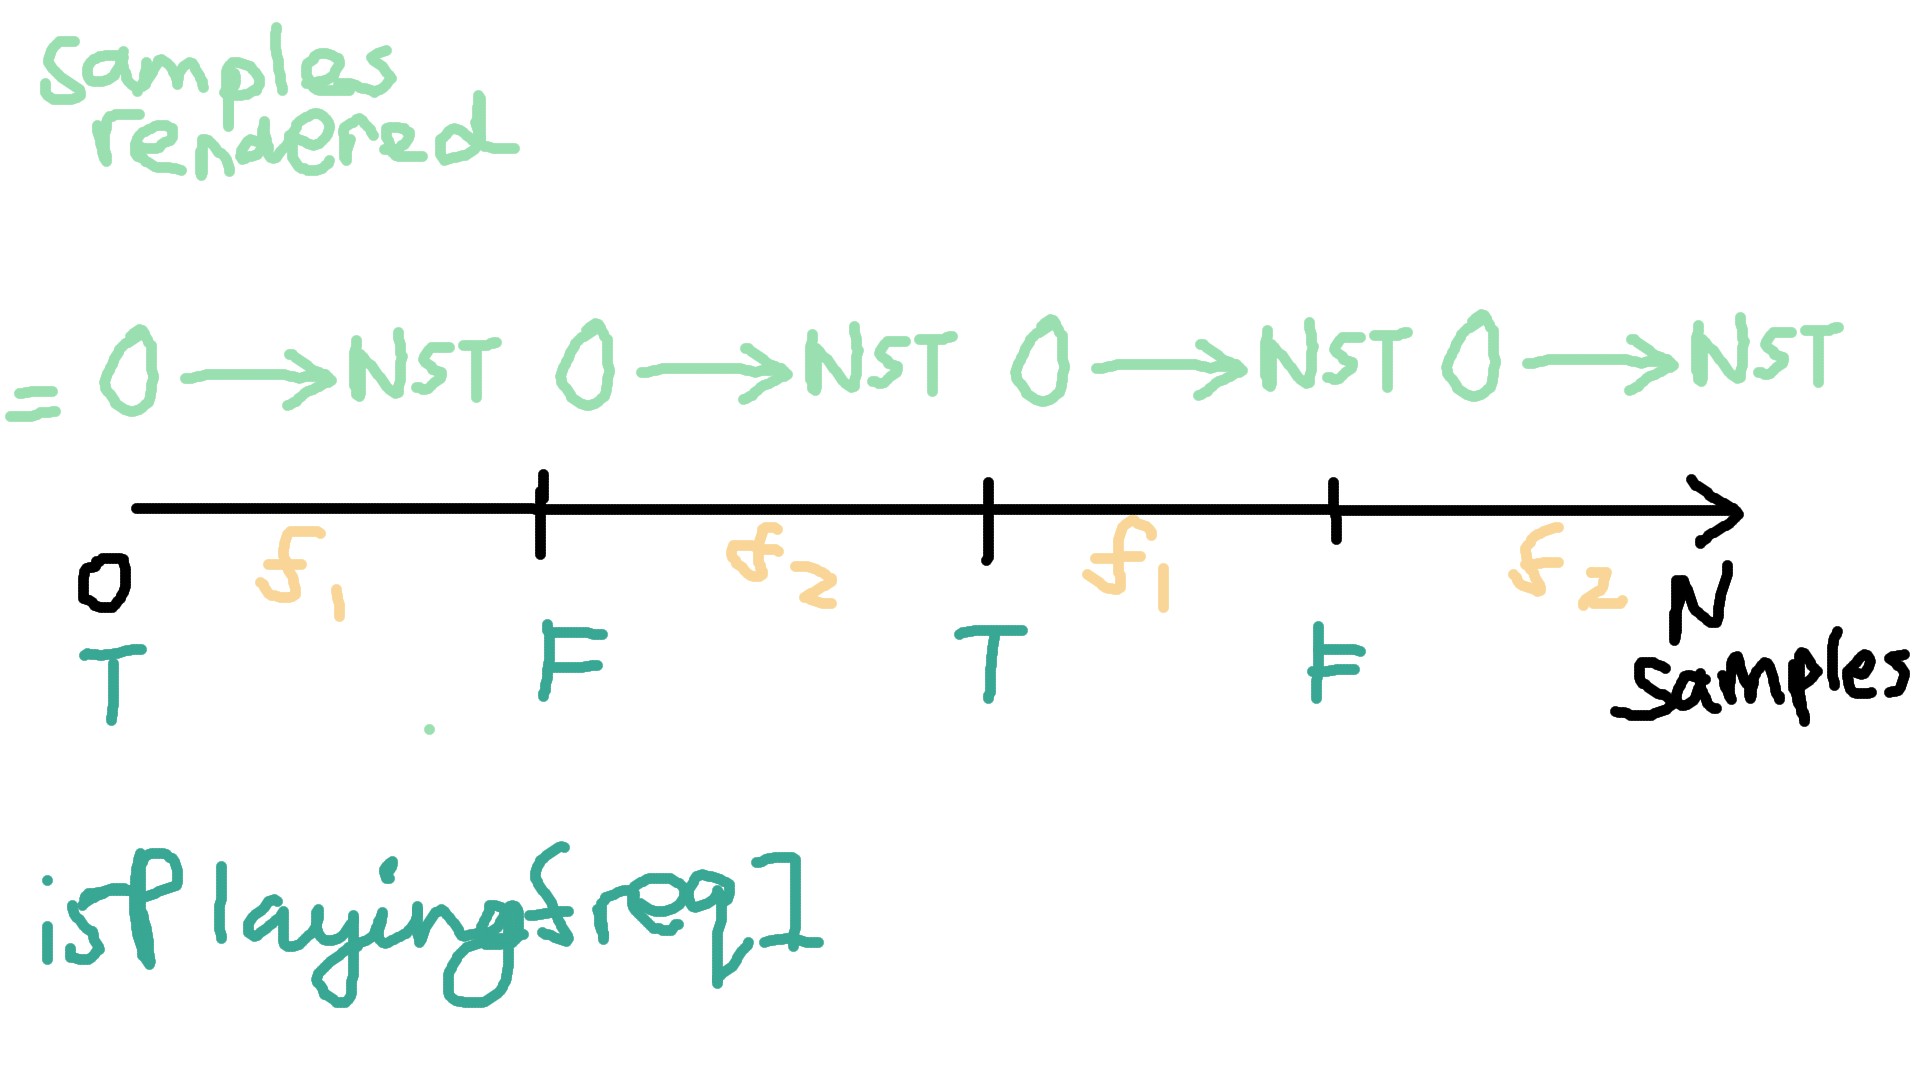 samples
rendered
= 0 → NST 0 → NST 0 → NST 0 → NST
f1 f2 f1 f2
0 N
samples
T F T F
isPlayingfreq1